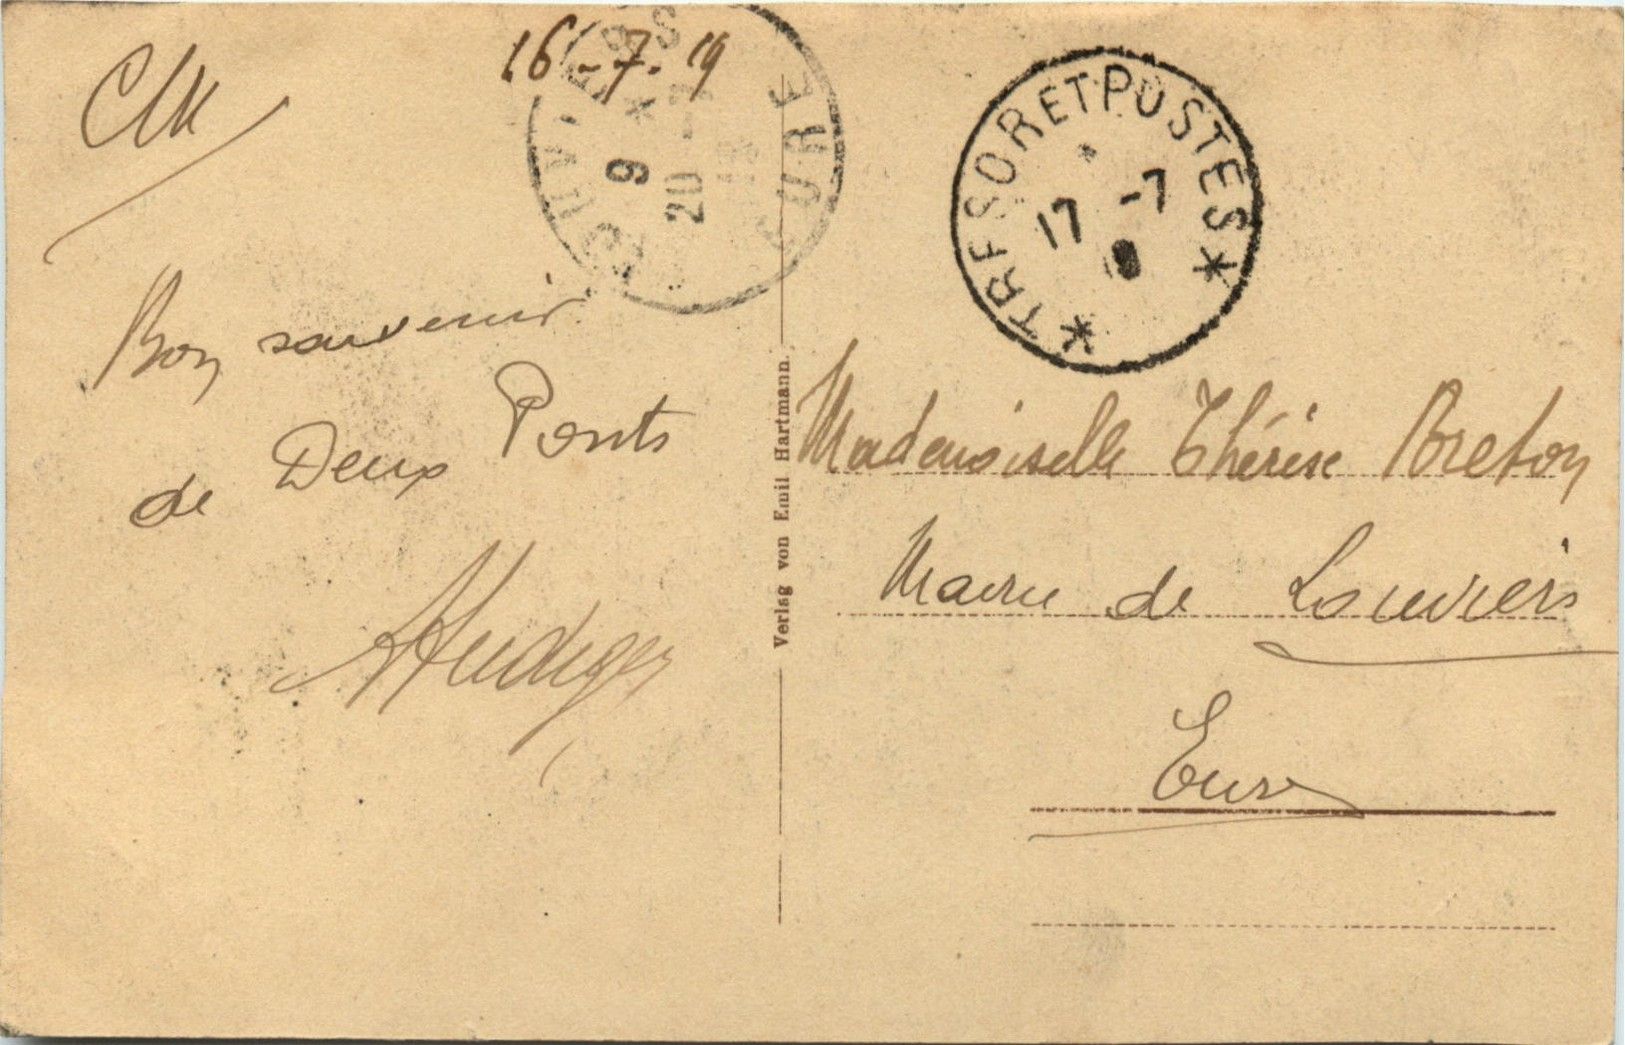 16-7-19
Bon souvenir
de Deux Ponts
LOUVIERS
EURE
9 *
20 -7
TRESOR ET POSTES
17 -7
Mademoiselle Thérèse Breton
Mairie de Louviers
Eure
Verlag von Emil Hartmann.